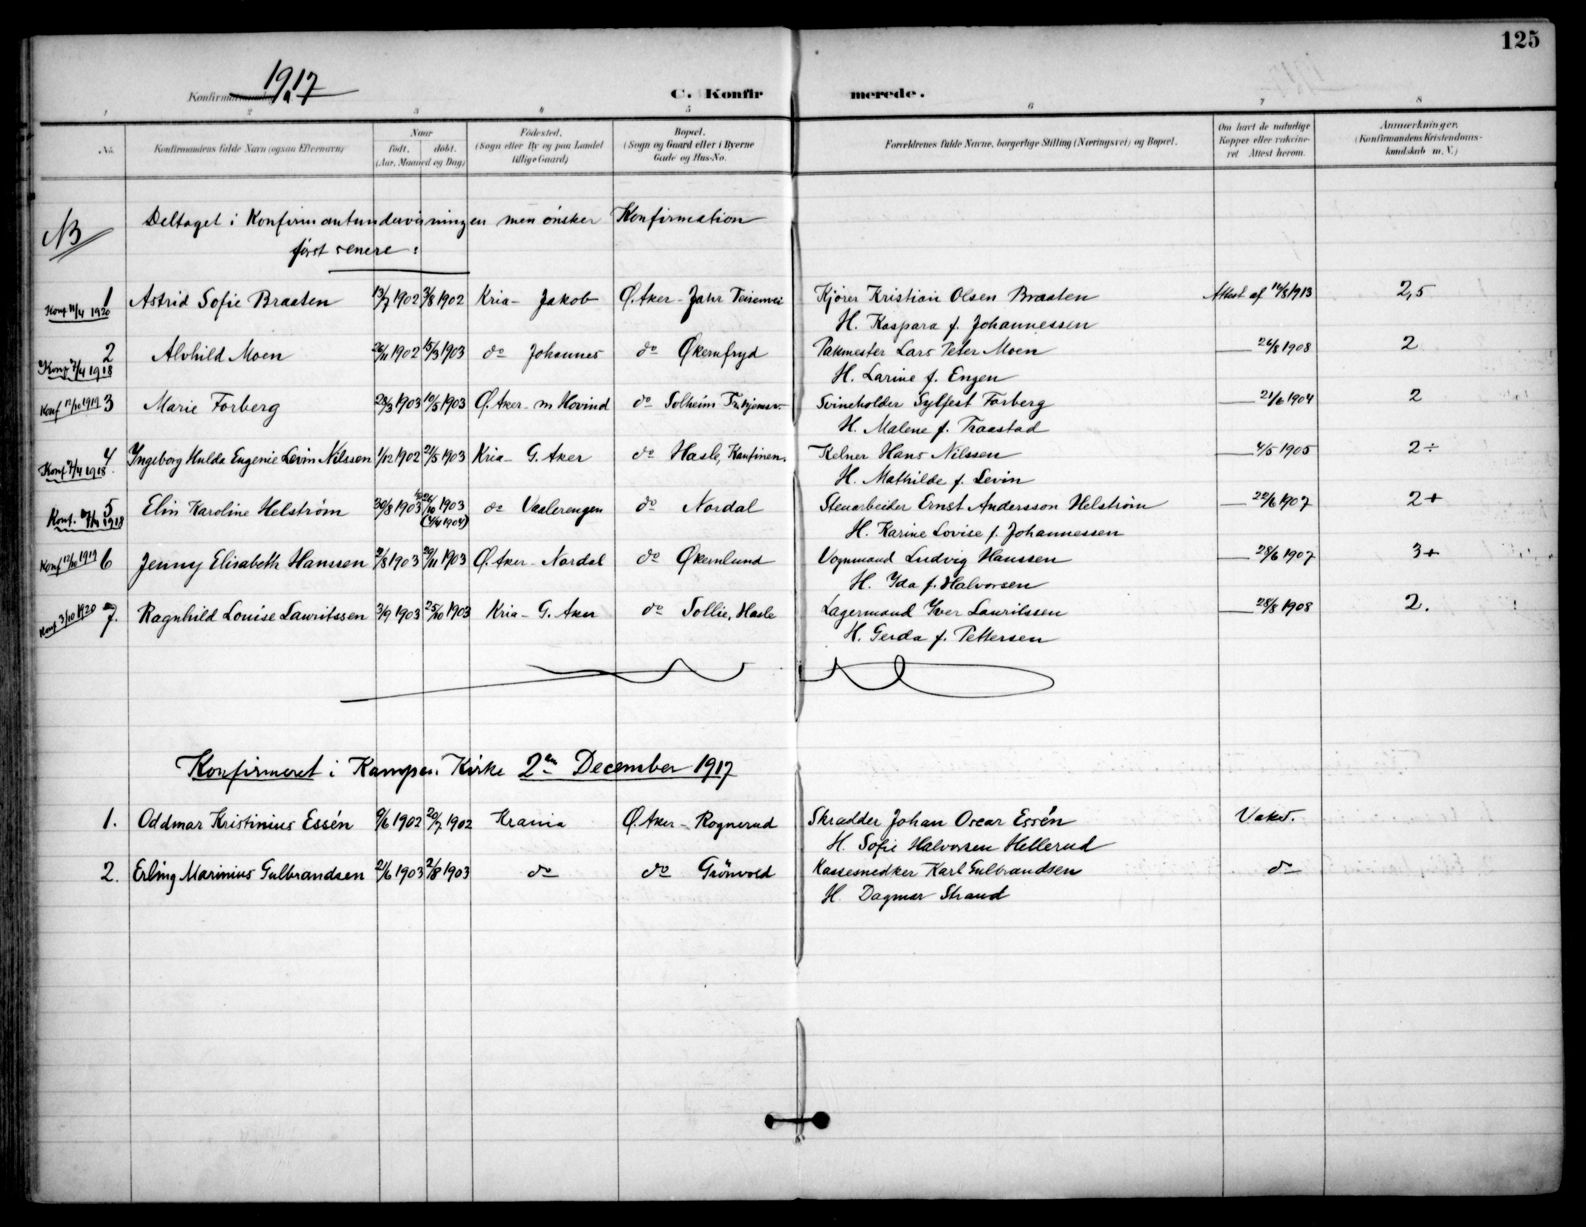 125
1917
Konfirmationsdag
C. Konfirmerede.
1 2 3 4 5 6 7 8
No. Konfirmandens fulde Navn (ogsaa Efternavn) Naar født. døbt. (Aar, Maaned og Dag) Fødested. (Sogn eller By og paa Landet tillige Gaard) Bopæl. (Sogn og Gaard eller i Byerne Gade og Hus-No. Forældrenes fulde Navne, borgerlige Stilling (Næringsvei) og Bopæl. Om havt de naturlige Kopper eller vaccineret Attest herom. Anmærkninger. (Konfirmandens Kristendomskundskab m. V.)
NB Deltaget i Konfirmantundervisningen men ønsker Konfirmation
først senere:
Konf 11/4 1920 1 Astrid Sofie Braaten 13/7 1902 3/8 1902 Kria - Jakob Ø. Aker - Kjører Kristian Olsen Braaten Attest af 16/8 1913 2,5
H. Kaspara f. Johannessen
Konf 7/4 1918 2 Alvhild Moen 26/11 1902 15/3 1903 do Johannes do Økernfryd Pakmester Lars Peter Moen — 26/8 1908 2
H. Larine f. Engen
Konf 12/10 1919 3 Marie Forberg 28/3 1903 10/5 1903 Ø. Aker - m Hovind do Solheim Svineholder Sylfest Forberg — 21/6 1904 2
H. Malene f. Traastad
Konf 7/4 1918 4 Ingeborg Hulda Eugenie Levin Nilssen 1/12 1902 21/5 1903 Kria - G. Aker do Hasle, Kelner Hans Nilssen — 4/5 1905 2÷
H. Mathilde f. Levin
Konf. 1918 5 Elin Karoline Helstrøm 30/8 1903 26/10 1903 do Vaalerengen do Nordal Stenarbeider Ernst Andersson Helstrøm — 22/6 1907 2+
(4/4 1904)
H. Karine Lovise f. Johannessen
Konf 12/10 1919 6 Jenny Elisabeth Hanssen 2/8 1903 29/11 1903 Ø. Aker - Nordal do Økernlund Vognmand Ludvig Hanssen — 28/6 1907 3+
H. Ida f. Halvorsen
Konf 3/10 1920 7. Ragnhild Louise Lauritssen 3/9 1903 25/10 1903 Kria - G. Aker do Sollie, Hasle Lagermand Iver Lauritssen — 28/8 1908 2.
H. Gerda f. Pettersen
Konfirmeret i Kampen Kirke 2en December 1917
1. Oddmar Kristinius Essén 9/6 1902 20/7 1902 Krania Ø. Aker - Rognerud Skrædder Johan Oscar Essén Vakc.
H. Sofie Halvorsen Hellerud
2. Erling Marinius Gulbrandsen 21/6 1903 2/8 1903 do do Grönvold Kassesnedker Karl Gulbrandsen do
H. Dagmar Strand